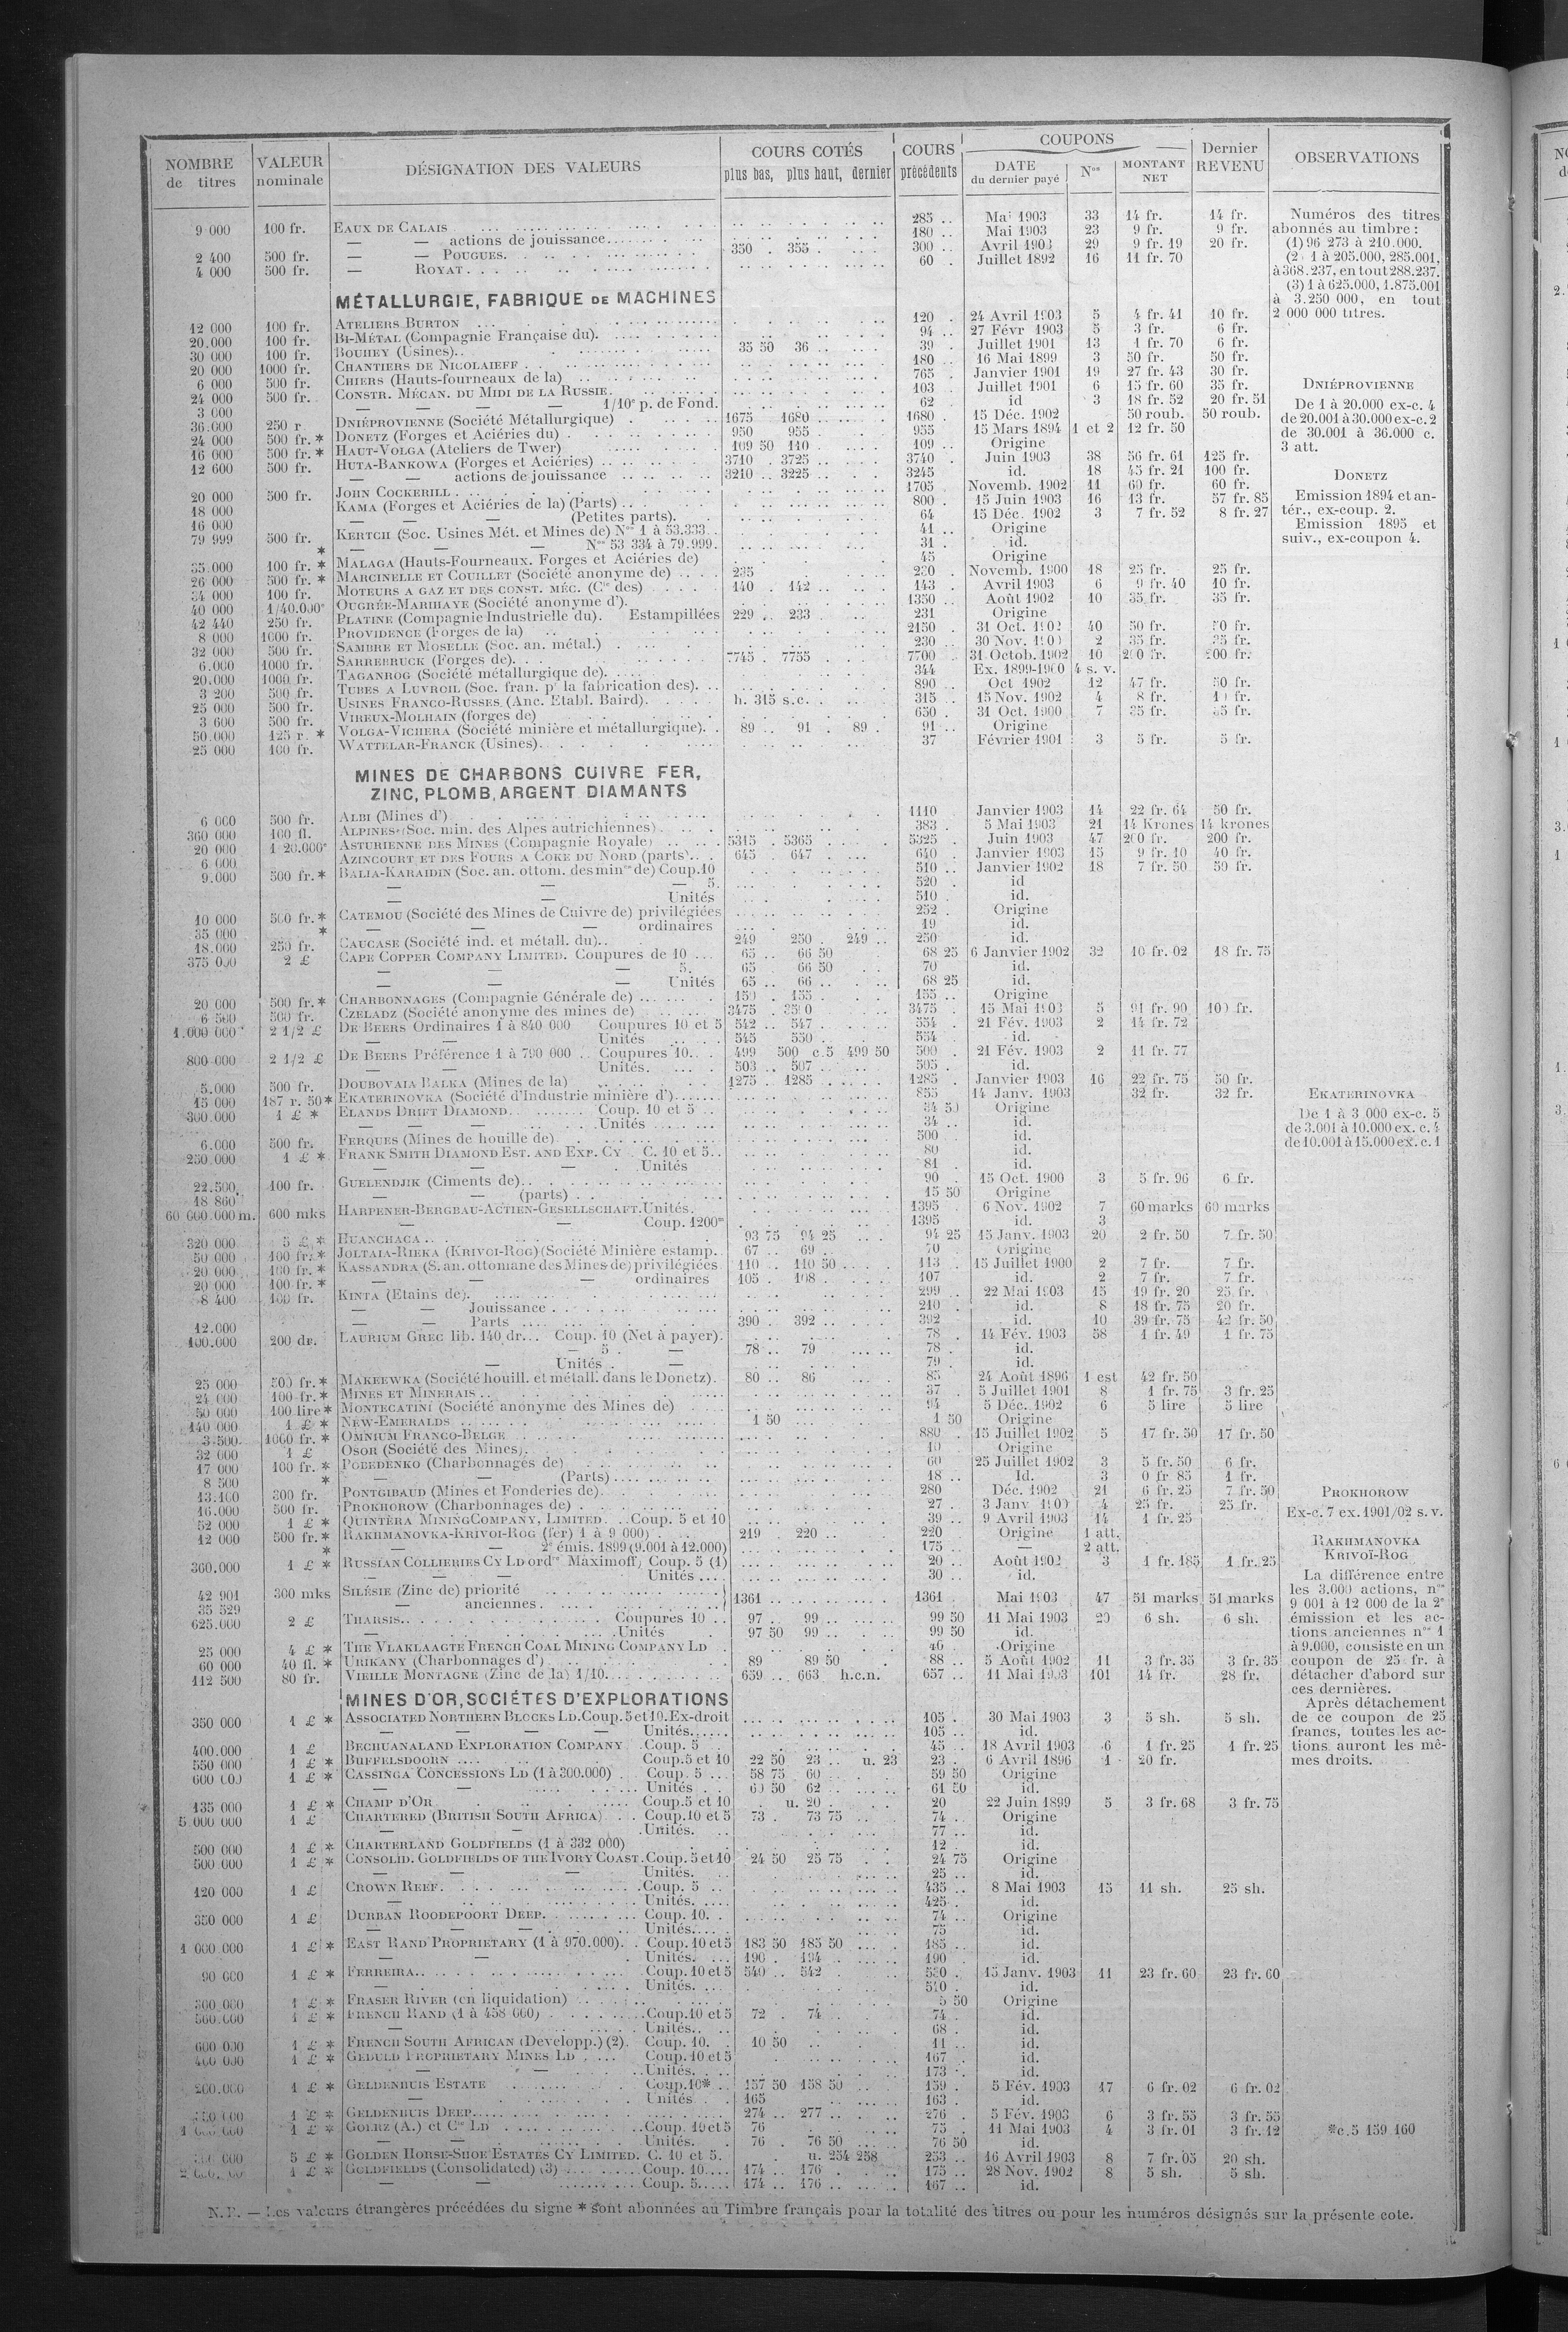 NOMBRE de titres | VALEUR nominale | DÉSIGNATION DES VALEURS | COURS COTÉS plus bas, plus haut, dernier | COURS précédents | COUPONS DATE du dernier payé | Nos | MONTANT NET | Dernier REVENU | OBSERVATIONS
9 000 100 fr. EAUX DE CALAIS 285 .. Mai 1903 33 14 fr. 14 fr.
— — actions de jouissance 180 .. Mai 1903 23 9 fr. 9 fr.
2 400 500 fr. — — POUGUES. 350 . 355 . 300 .. Avril 1903 29 9 fr. 19 20 fr.
4 000 500 fr. — ROYAT. 60 . Juillet 1892 16 11 fr. 70
MÉTALLURGIE, FABRIQUE DE MACHINES
12 000 100 fr. ATELIERS BURTON 120 . 24 Avril 1903 5 4 fr. 41 10 fr.
20.000 100 fr. BI-MÉTAL (Compagnie Française du). 94 .. 27 Févr 1903 5 3 fr. 6 fr.
30 000 100 fr. BOUHEY (Usines).. 35 50 36 .. 39 . Juillet 1901 13 1 fr. 70 6 fr.
20 000 1000 fr. CHANTIERS DE NICOLAIEFF 180 .. 16 Mai 1899 3 50 fr. 50 fr.
6 000 500 fr. CHIERS (Hauts-fourneaux de la) 765 . Janvier 1901 19 27 fr. 43 30 fr.
24 000 500 fr. CONSTR. MÉCAN. DU MIDI DE LA RUSSIE. 103 . Juillet 1901 6 15 fr. 60 35 fr.
3 600 — — — — 1/10e p. de Fond. 62 . id 3 18 fr. 52 20 fr. 51
36.000 250 r. DNIÉPROVIENNE (Société Métallurgique) 1675 1680 1680 . 15 Déc. 1902 50 roub. 50 roub.
24 000 500 fr. * DONETZ (Forges et Aciéries du) 950 955 . 955 15 Mars 1894 1 et 2 12 fr. 50
16 000 500 fr. * HAUT-VOLGA (Ateliers de Twer) 109 50 110 . 109 .. Origine
12 600 500 fr. HUTA-BANKOWA (Forges et Aciéries) 3710 . 3725 .. 3740 . Juin 1903 38 56 fr. 61 125 fr.
— — actions de jouissance 3210 .. 3225 .. 3245 id. 18 45 fr. 21 100 fr.
20 000 500 fr. JOHN COCKERILL 1705 Novemb. 1902 11 60 fr. 60 fr.
18 000 KAMA (Forges et Aciéries de la) (Parts) 800 . 15 Juin 1903 16 13 fr. 57 fr. 85
16 000 — — — (Petites parts). 64 15 Déc. 1902 3 7 fr. 52 8 fr. 27
79 999 500 fr. KERTCH (Soc. Usines Mét. et Mines de) Nos 1 à 53.333. 41 .. Origine
* — — — Nos 53 334 à 79.999. 31 . id.
35.000 100 fr. * MALAGA (Hauts-Fourneaux. Forges et Aciéries de) 45 Origine
26 000 500 fr. * MARCINELLE ET COUILLET (Société anonyme de) 235 230 . Novemb. 1900 18 25 fr. 25 fr.
34 000 100 fr. MOTEURS A GAZ ET DES CONST. MÉC. (Cie des) 140 . 142 .. 143 . Avril 1903 6 9 fr. 40 10 fr.
40 000 1/40.000e OUGRÉE-MARIHAYE (Société anonyme d'). 1350 .. Août 1902 10 35 fr. 35 fr.
42 440 250 fr. PLATINE (Compagnie Industrielle du). Estampillées 229 .. 233 . 231 Origine
8 000 1000 fr. PROVIDENCE (Forges de la) 2150 . 31 Oct. 1902 40 50 fr. 50 fr.
32 000 500 fr. SAMBRE ET MOSELLE (Soc. an. métal.) 230 . 30 Nov. 1900 2 35 fr. 35 fr.
6.000 1000 fr. SARREBRUCK (Forges de). 7745 . 7755 . 7700 . 31 Octob. 1902 10 200 fr. 200 fr.
20.000 1000 fr. TAGANROG (Société métallurgique de). 344 Ex. 1899-1900 4 s. v.
3 200 500 fr. TUBES A LUVROIL (Soc. fran. pr la fabrication des). 890 .. Oct 1902 12 47 fr. 50 fr.
25 000 500 fr. USINES FRANCO-RUSSES (Anc. Etabl. Baird). h. 315 s.c. 315 15 Nov. 1902 4 8 fr. 10 fr.
3 600 500 fr. VIREUX-MOLHAIN (forges de) 650 . 31 Oct. 1900 7 35 fr. 35 fr.
50.000 125 r. * VOLGA-VICHERA (Société minière et métallurgique). 89 .. 91 . 89 . 91 .. Origine
25 000 100 fr. WATTELAR-FRANCK (Usines). 37 Février 1901 3 5 fr. 5 fr.
MINES DE CHARBONS CUIVRE FER,
ZINC, PLOMB, ARGENT DIAMANTS
6 000 500 fr. ALBI (Mines d') 1110 Janvier 1903 14 22 fr. 64 50 fr.
360 000 100 fl. ALPINES (Soc. min. des Alpes autrichiennes). 383 . 5 Mai 1903 21 14 Krones 14 krones
20 000 1 20.000e ASTURIENNE DES MINES (Compagnie Royale) 5315 . 5365 5325 . Juin 1903 47 200 fr. 200 fr.
6 000 AZINCOURT ET DES FOURS A COKE DU NORD (parts). 645 . 647 . 640 . Janvier 1903 15 9 fr. 10 40 fr.
9.000 500 fr. * BALIA-KARAIDIN (Soc. an. ottom. des mines de) Coup.10 510 .. Janvier 1902 18 7 fr. 50 50 fr.
— — — 5. 520 . id
— — Unités 510 . id.
10 000 500 fr. * CATEMOU (Société des Mines de Cuivre de) privilégiées 252 . Origine
35 000 * — — — ordinaires 49 id.
18.000 250 fr. CAUCASE (Société ind. et métall. du).. 249 250 . 249 .. 250 id.
375 000 2 £ CAPE COPPER COMPANY LIMITED. Coupures de 10 65 .. 66 50 68 25 6 Janvier 1902 32 10 fr. 02 18 fr. 75
— — — 5. 65 . 66 50 70 id.
— — — Unités 65 .. 66 .. 68 25 id.
20 000 500 fr. * CHARBONNAGES (Compagnie Générale de) 150 . 155 . 155 .. Origine
6 500 500 fr. CZELADZ (Société anonyme des mines de) 3475 . 3500 3475 . 15 Mai 1903 5 91 fr. 90 100 fr.
1.000 000 2 1/2 £ DE BEERS Ordinaires 1 à 840 000 Coupures 10 et 5 542 .. 547 . 554 . 21 Fév. 1903 2 14 fr. 72
— — Unités 545 550 . 554 . id.
800 000 2 1/2 £ DE BEERS Préférence 1 à 790 000 .. Coupures 10. 499 500 c.5 499 50 500 . 21 Fév. 1903 2 11 fr. 77
— — Unités. 503 .. 507 .. 505 . id.
5.000 500 fr. DOUBOVAIA BALKA (Mines de la) 1275 . 1285 . 1285 . Janvier 1903 16 22 fr. 75 50 fr.
15 000 187 r. 50* EKATERINOVKA (Société d'Industrie minière d') 855 14 Janv. 1903 32 fr. 32 fr.
300.000 1 £ * ELANDS DRIFT DIAMOND. Coup. 10 et 5 34 50 Origine
— — — Unités 34 .. id.
6.000 500 fr. FERQUES (Mines de houille de) 500 . id.
250.000 1 £ * FRANK SMITH DIAMOND EST. AND EXP. CY . C. 10 et 5.. 80 id.
— — — Unités 81 . id.
22.500 100 fr. GUELENDJIK (Ciments de).. 90 . 15 Oct. 1900 3 5 fr. 96 6 fr.
18 860 — — (parts) 15 50 Origine
60 600.000 m. 600 mks HARPENER-BERGBAU-ACTIEN-GESELLSCHAFT. Unités. 1395 . 6 Nov. 1902 7 60 marks 60 marks
— — Coup. 1200m 1395 id. 3
320 000 5 £ * HUANCHACA 93 75 94 25 94 25 15 Janv. 1903 20 2 fr. 50 7 fr. 50
50 000 100 fr. * JOLTAIA-RIEKA (KRIVOI-ROG) (Société Minière estamp. 67 .. 69 . 70 Origine
20 000 100 fr. * KASSANDRA (S. an. ottomane des Mines de) privilégiées 110 .. 110 50 113 . 15 Juillet 1900 2 7 fr. 7 fr.
20 000 100 fr. * — — — ordinaires 105 . 108 . 107 id. 2 7 fr. 7 fr.
8 400 100 fr. KINTA (Etains de). 299 .. 22 Mai 1903 15 19 fr. 20 25 fr.
— — Jouissance 210 . id. 8 18 fr. 75 20 fr.
12.000 — — Parts 390 . 392 .. 392 id. 10 39 fr. 75 42 fr. 50
100.000 200 dr. LAURIUM GREC lib. 140 dr... Coup. 10 (Net à payer). 78 . 14 Fév. 1903 58 1 fr. 49 1 fr. 75
— 5 . — 78 .. 79 78 . id.
— Unités . — 79 . id.
25 000 500 fr. * MAKEEWKA (Société houill. et métall. dans le Donetz). 80 .. 86 85 24 Août 1896 1 est 42 fr. 50
24 000 100 fr. * MINES ET MINERAIS 37 . 5 Juillet 1901 8 1 fr. 75 3 fr. 25
50 000 100 lire * MONTECATINI (Société anonyme des Mines de) 94 5 Déc. 1902 6 5 lire 5 lire
140 000 1 £ * NEW-EMERALDS 1 50 1 50 Origine
3.500 1000 fr. * OMNIUM FRANCO-BELGE 880 . 15 Juillet 1902 5 17 fr. 50 17 fr. 50
32 000 1 £ OSOR (Société des Mines). 10 Origine
17 000 100 fr. * POBEDENKO (Charbonnages de) 60 25 Juillet 1902 3 5 fr. 50 6 fr.
8 500 * — — (Parts) 18 .. Id. 3 0 fr. 85 1 fr.
13.100 300 fr. PONTGIBAUD (Mines et Fonderies de). 280 Déc. 1902 21 6 fr. 25 7 fr. 50
16.000 500 fr. PROKHOROW (Charbonnages de) 27 . 3 Janv 1900 4 25 fr. 25 fr.
52 000 1 £ * QUINTÉRA MINING COMPANY, LIMITED. Coup. 5 et 10 39 .. 9 Avril 1903 14 1 fr. 25
12 000 500 fr. * RAKHMANOVKA-KRIVOI-ROG (fer) 1 à 9 000) 219 . 220 .. 220 Origine 1 att.
* — — 2e émis. 1899 (9.001 à 12.000) 175 .. — 2 att.
360.000 1 £ * RUSSIAN COLLIERIES CY LD ordre Maximoff) Coup. 5 (1) 20 .. Août 1902 3 1 fr. 185 1 fr. 25
— — — Unités 30 .. id.
42 901 300 mks SILÉSIE (Zinc de) priorité 1361 1361 Mai 1903 47 51 marks 51 marks
35 529 — anciennes
625.000 2 £ THARSIS. Coupures 10 97 . 99 .. 99 50 11 Mai 1903 20 6 sh. 6 sh.
— Unités 97 50 99 .. 99 50 id.
25 000 4 £ * THE VLAKLAAGTE FRENCH COAL MINING COMPANY LD 40 . Origine
60 000 40 fl. * URIKANY (Charbonnages d') 89 89 50 88 .. 5 Août 1902 11 3 fr. 35 3 fr. 35
112 500 80 fr. VIEILLE MONTAGNE (Zinc de la) 1/10. 659 .. 663 h.c.n. 657 .. 11 Mai 1903 101 14 fr. 28 fr.
MINES D'OR, SOCIÉTÉS D'EXPLORATIONS
350 000 1 £ * ASSOCIATED NORTHERN BLOCKS LD. Coup. 5 et 10. Ex-droit 105 . 30 Mai 1903 3 5 sh. 5 sh.
— — — — Unités 105 .. id.
400.000 1 £ BECHUANALAND EXPLORATION COMPANY . Coup. 5 45 .. 18 Avril 1903 6 1 fr. 25 1 fr. 25
550 000 1 £ * BUFFELSDOORN Coup. 5 et 10 22 50 23 .. u. 23 23 . 6 Avril 1896 1 20 fr.
600 000 1 £ * CASSINGA CONCESSIONS LD (1 à 300.000) . Coup. 5 58 75 60 . 59 50 Origine
— — Unités 60 50 62 .. 61 50 id.
135 000 1 £ * CHAMP D'OR Coup. 5 et 10 u. 20 . 20 22 Juin 1899 5 3 fr. 68 3 fr. 75
5.000 000 1 £ CHARTERED (BRITISH SOUTH AFRICA) Coup. 10 et 5 73 . 73 75 74 .. Origine
— — Unités. 77 .. id.
500 000 1 £ * CHARTERLAND GOLDFIELDS (1 à 332 000) 12 . id.
500 000 1 £ * CONSOLID. GOLDFIELDS OF THE IVORY COAST. Coup. 5 et 10 24 50 25 75 24 75 Origine
— — — Unités. 25 .. id.
120 000 1 £ CROWN REEF. Coup. 5 435 .. 8 Mai 1903 15 11 sh. 25 sh.
— Unités. 425 . id.
350 000 1 £ DURBAN ROODEPOORT DEEP. Coup. 10. 74 .. Origine
— — — Unités. 75 id.
1 000.000 1 £ * EAST RAND PROPRIETARY (1 à 970.000). Coup. 10 et 5 183 50 185 50 185 .. id.
— — Unités. 190 . 194 . 190 . id.
90 000 1 £ * FERREIRA. Coup. 10 et 5 540 .. 542 . 530 . 15 Janv. 1903 11 23 fr. 60 23 fr. 60
— Unités. 510 . id.
1 £ * FRASER RIVER (en liquidation) 5 50 Origine
560.000 1 £ * FRENCH RAND (1 à 458 000) Coup. 10 et 5 72 . 74 . 74 . id.
— Unités. 68 . id.
600 000 1 £ * FRENCH SOUTH AFRICAN (Developp.) (2). Coup. 10. 10 50 11 .. id.
400 000 1 £ * GEDULD PROPRIETARY MINES LD Coup. 10 et 5 167 . id.
— — Unités. 173 . id.
200.000 1 £ * GELDENHUIS ESTATE Coup. 10* 157 50 158 50 159 . 5 Fév. 1903 17 6 fr. 02 6 fr. 02
— Unités 165 163 . id.
1 £ * GELDENHUIS DEEP. 274 .. 277 .. 276 . 5 Fév. 1903 6 3 fr. 55 3 fr. 55
1 £ * GOERZ (A.) et Cie LD Coup. 10 et 5 76 75 . 11 Mai 1903 4 3 fr. 01 3 fr. 12
— — Unités. 76 . 76 50 76 50 id.
5 £ * GOLDEN HORSE-SHOE ESTATES CY LIMITED. C. 10 et 5. u. 254 258 253 .. 16 Avril 1903 8 7 fr. 05 20 sh.
1 £ * GOLDFIELDS (Consolidated) (3) Coup. 10 174 .. 176 . 175 .. 28 Nov. 1902 8 5 sh. 5 sh.
— — Coup. 5 174 .. 176 .. 167 .. id.
Numéros des titres
abonnés au timbre :
(1) 96 273 à 210.000.
(2) 1 à 205.000, 285.001,
à 368.237, en tout 288.237.
(3) 1 à 625.000, 1.875.001
à 3.250 000, en tout
2 000 000 titres.
DNIÉPROVIENNE
De 1 à 20.000 ex-c. 4
de 20.001 à 30.000 ex-c. 2
de 30.001 à 36.000 c.
3 att.
DONETZ
Emission 1894 et an-
tér., ex-coup. 2.
Emission 1895 et
suiv., ex-coupon 4.
EKATERINOVKA
De 1 à 3 000 ex-c. 5
de 3.001 à 10.000 ex. c. 4
de 10.001 à 15.000 ex. c. 1
PROKHOROW
Ex-c. 7 ex. 1901/02 s. v.
RAKHMANOVKA
KRIVOÏ-ROG
La différence entre
les 3.000 actions, nos
9 001 à 12 000 de la 2e
émission et les ac-
tions anciennes nos 1
à 9.000, consiste en un
coupon de 25 fr. à
détacher d'abord sur
ces dernières.
Après détachement
de ce coupon de 25
francs, toutes les ac-
tions auront les mê-
mes droits.
*c. 5 159 160
N. B. — Les valeurs étrangères précédées du signe * sont abonnées au Timbre français pour la totalité des titres ou pour les numéros désignés sur la présente cote.